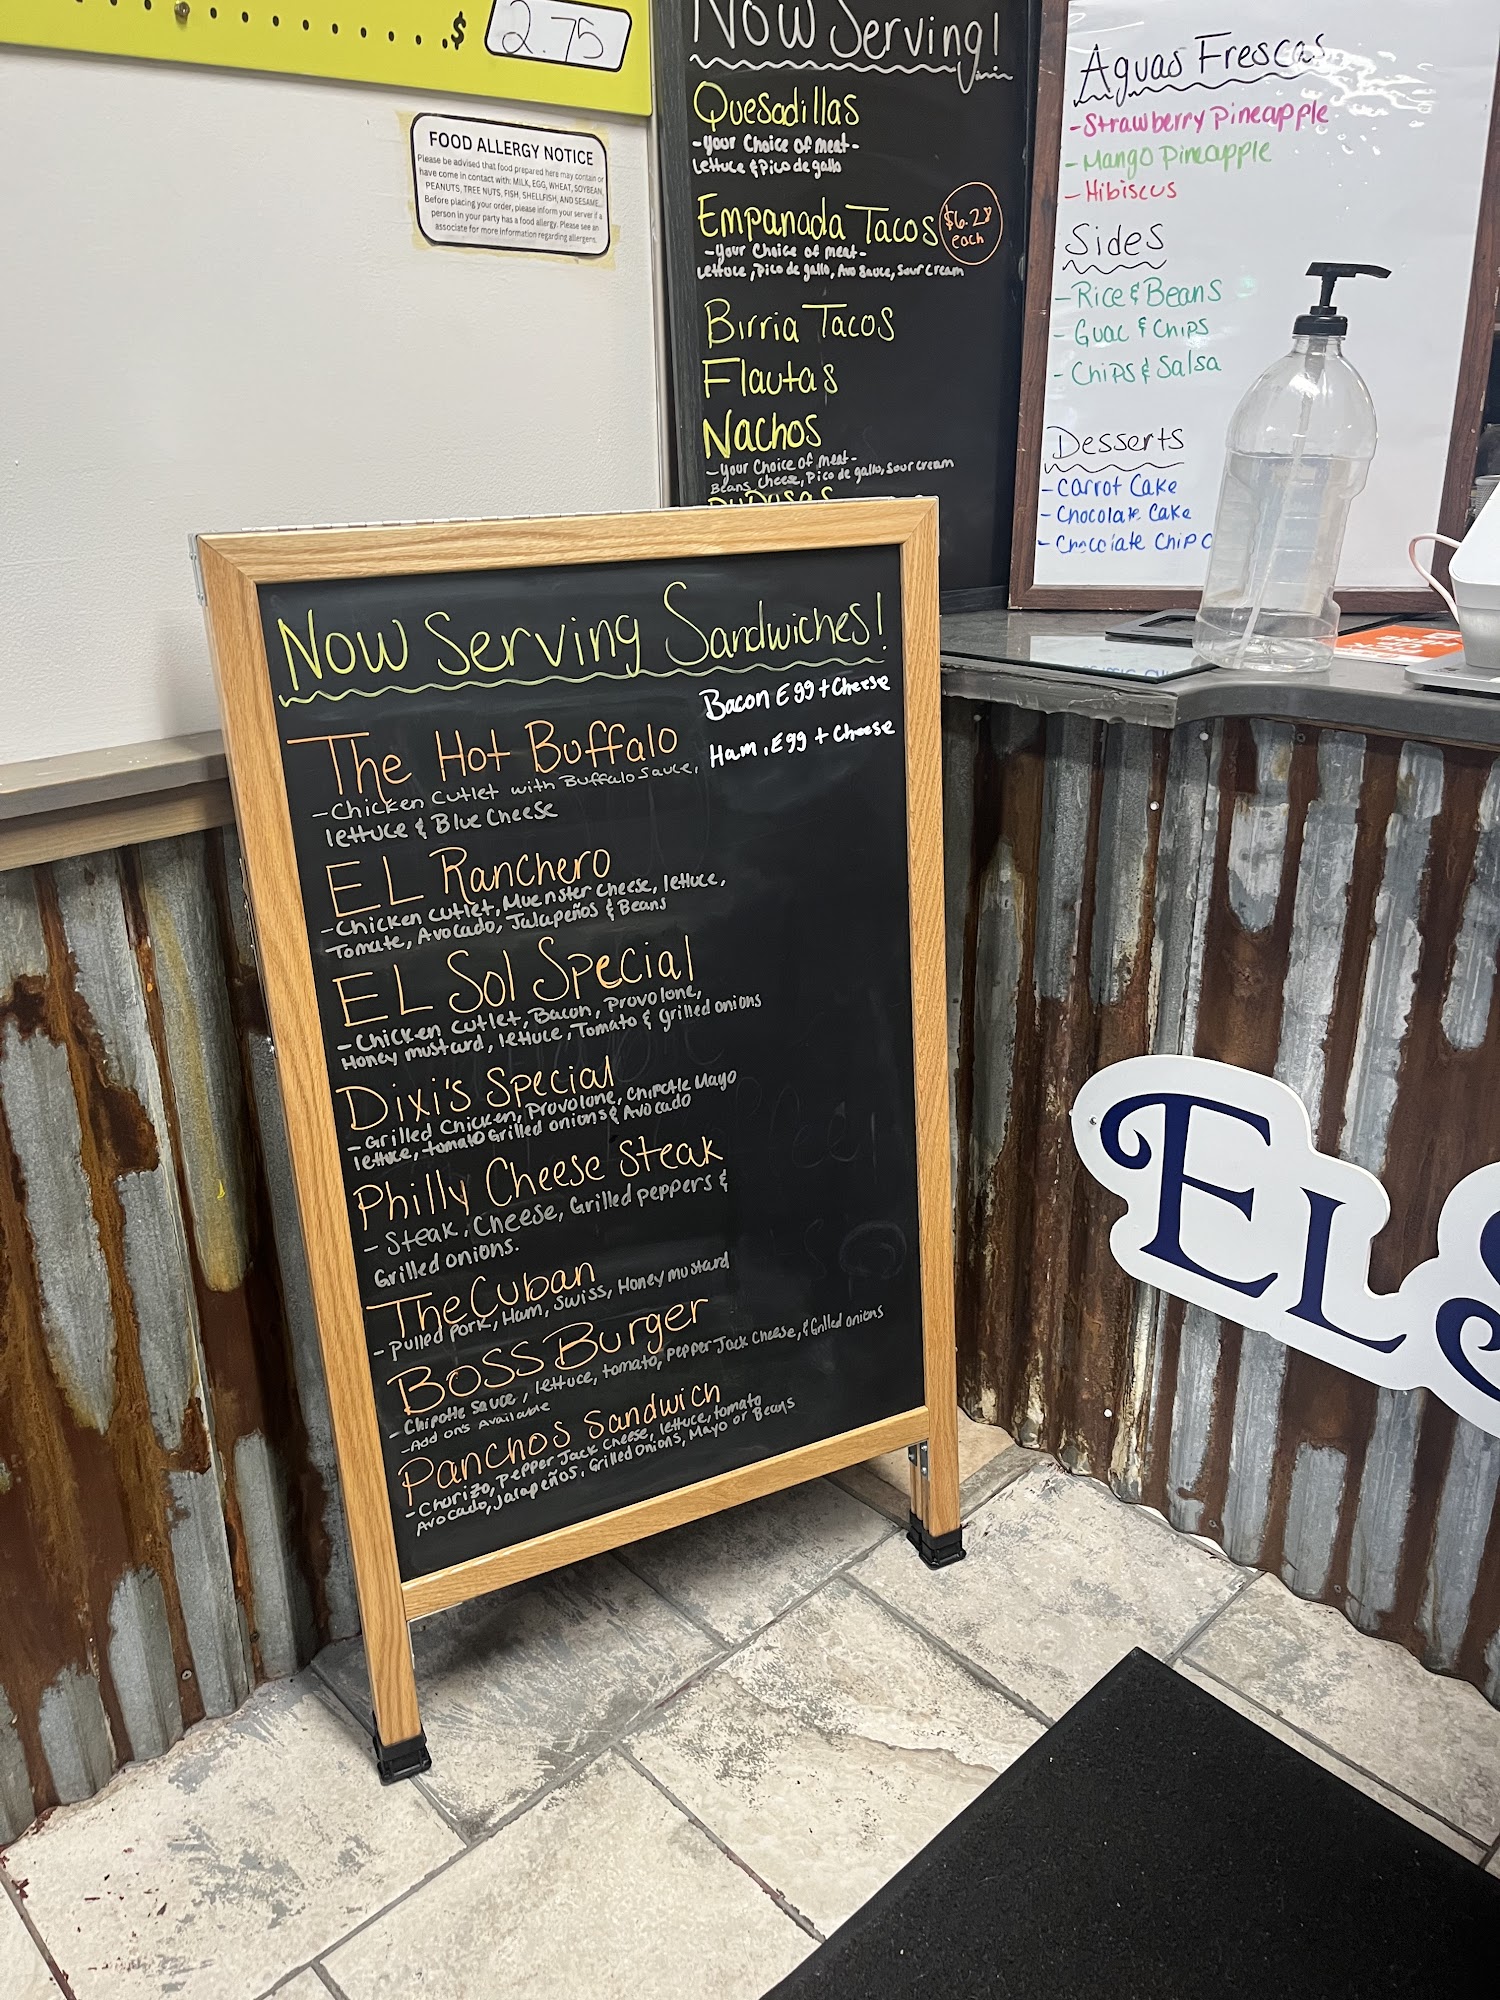 $ 2.75
FOOD ALLERGY NOTICE
Please be advised that food prepared here may contain or
have come in contact with: MILK, EGG, WHEAT, SOYBEAN,
PEANUTS, TREE NUTS, FISH, SHELLFISH, AND SESAME.
Before placing your order, please inform your server if a
person in your party has a food allergy. Please see an
associate for more information regarding allergens.
Now Serving!
Quesadillas
-your Choice of meat-
lettuce & Pico de gallo
Empanada Tacos
$6.28
each
-your Choice of meat-
lettuce, Pico de gallo, Avo Sauce, Sour Cream
Birria Tacos
Flautas
Nachos
-your Choice of meat-
Beans, Cheese, Pico de gallo, Sour Cream
Pupusas
Aguas Frescas
-Strawberry Pineapple
-Mango Pineapple
-Hibiscus
Sides
-Rice & Beans
-Guac & Chips
-Chips & Salsa
Desserts
-Carrot Cake
-Chocolate Cake
-Chocolate Chip C
Now Serving Sandwiches!
Bacon Egg + Cheese
Ham, Egg + Cheese
The Hot Buffalo
-Chicken Cutlet with Buffalo Sauce,
lettuce & Blue Cheese
EL Ranchero
-Chicken Cutlet, Muenster Cheese, lettuce,
Tomate, Avocado, Jalapeños & Beans
EL Sol Special
-Chicken Cutlet, Bacon, Provolone,
Honey mustard, lettuce, Tomato & Grilled onions
Dixi's Special
-Grilled Chicken, Provolone, Chipotle Mayo
lettuce, tomato Grilled onions & Avocado
Philly Cheese Steak
- Steak, Cheese, Grilled peppers &
Grilled onions.
The Cuban
-Pulled Pork, Ham, Swiss, Honey mustard
BOSS Burger
-Chipotle sauce, lettuce, tomato, Pepper Jack Cheese, & Grilled onions
-Add ons Available
Panchos Sandwich
-Churizo, Pepper Jack Cheese, lettuce, tomato
Avocado, Jalapeños, Grilled Onions, Mayo or Beans
EL S